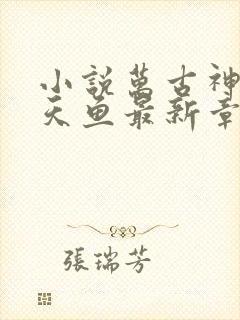 小說萬古神
天魚最新章
張瑞芳